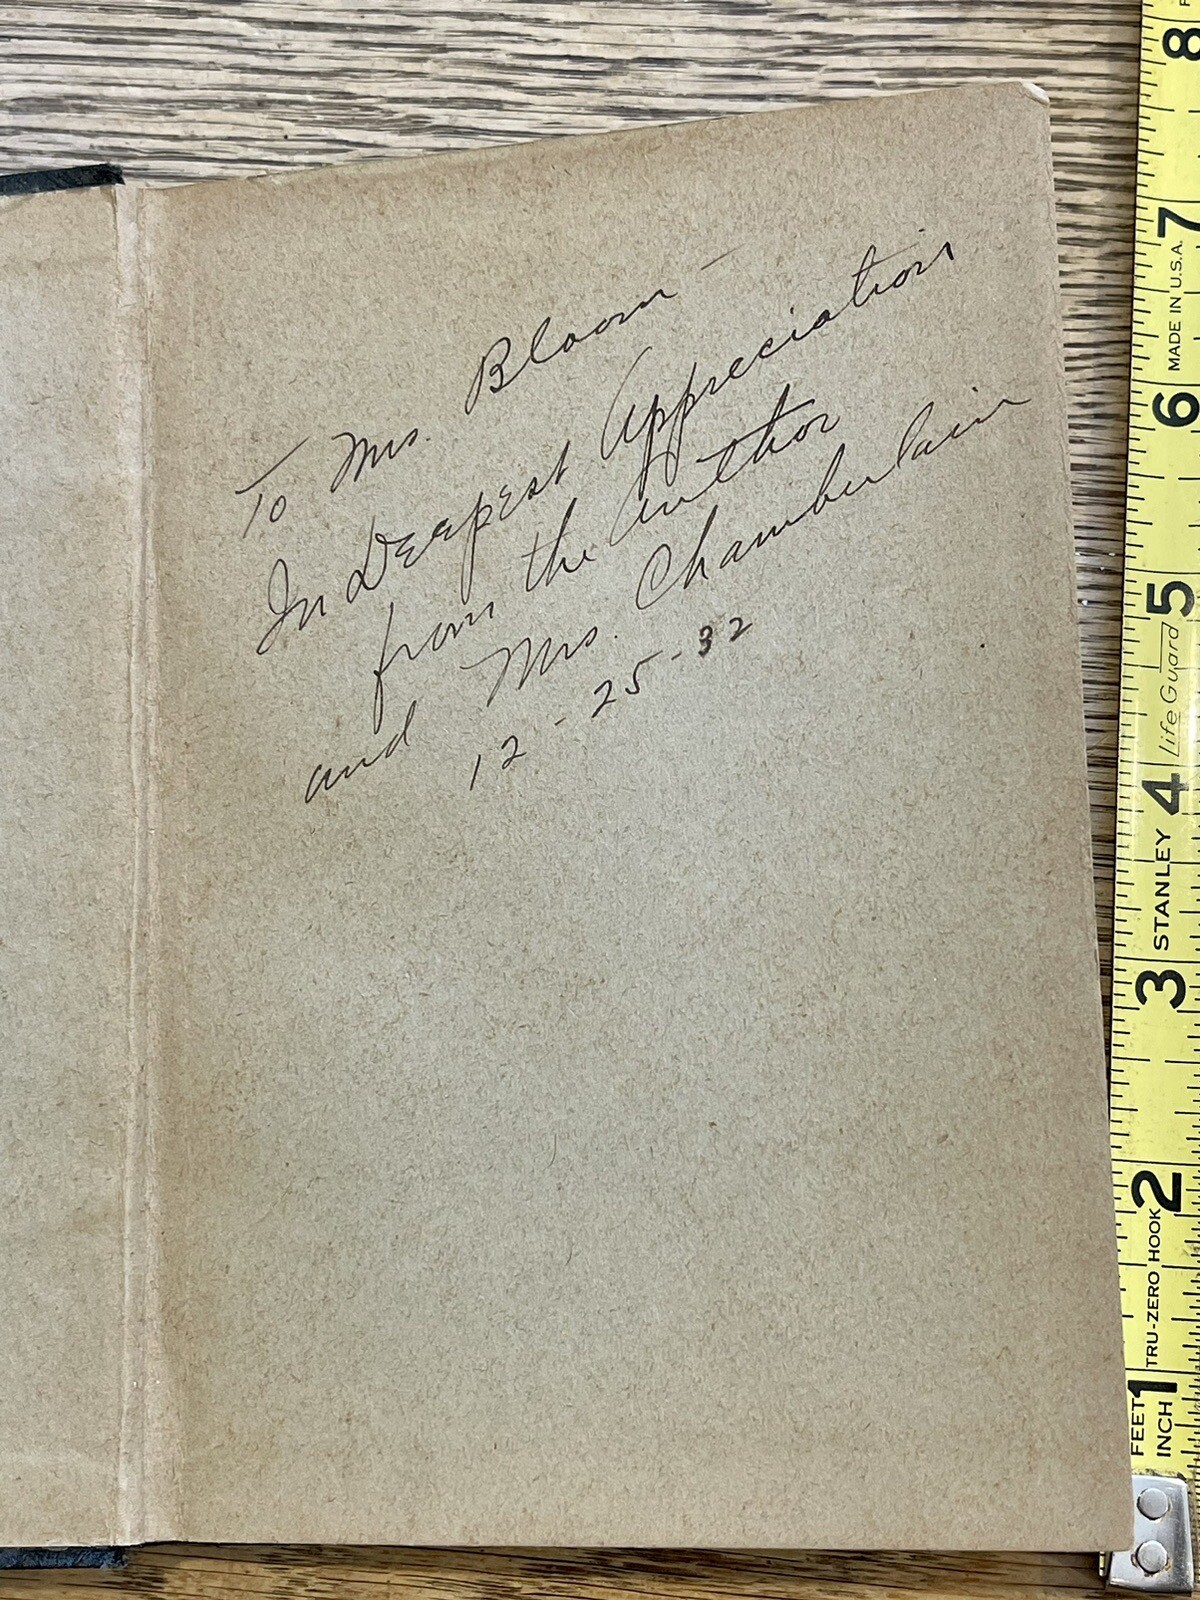 To Mrs. Bloom —
In Deepest Appreciation
from the Author
and Mrs. Chamberlain
12 - 25 - 32
8
7
MADE IN U.S.A.
6
5
Life Guard
4
STANLEY
3
2
TRU-ZERO HOOK
1
FEET
INCH